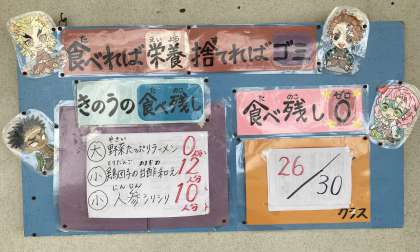 食べれば栄養捨てればゴミ
きのうの食べ残し
大 野菜たっぷりラーメン 0人分
小 鶏団子の甘酢和え 12人分
小 人参シリシリ 10人分
食べ残し0
26/30
クラス